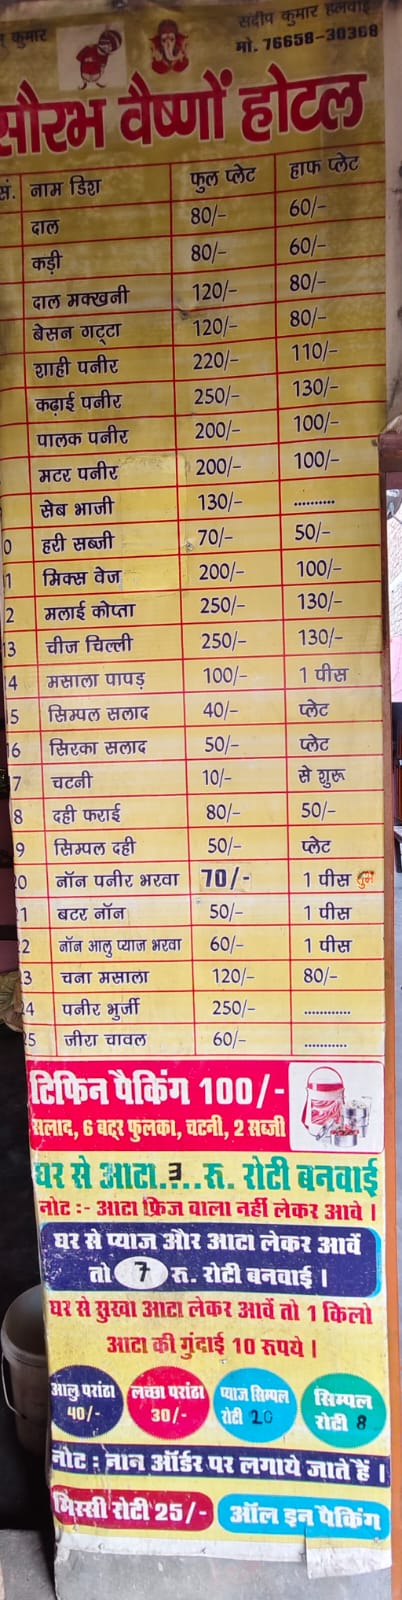 कुमार
संदीप कुमार हलवाई
मो. 76658-30368
सौरभ वैष्णों होटल
सं. नाम डिश फुल प्लेट हाफ प्लेट
दाल 80/- 60/-
कड़ी 80/- 60/-
दाल मक्खनी 120/- 80/-
बेसन गट्टा 120/- 80/-
शाही पनीर 220/- 110/-
कढ़ाई पनीर 250/- 130/-
पालक पनीर 200/- 100/-
मटर पनीर 200/- 100/-
सेब भाजी 130/- ..........
0 हरी सब्जी 70/- 50/-
1 मिक्स वेज 200/- 100/-
2 मलाई कोप्ता 250/- 130/-
13 चीज चिल्ली 250/- 130/-
4 मसाला पापड़ 100/- 1 पीस
5 सिम्पल सलाद 40/- प्लेट
16 सिरका सलाद 50/- प्लेट
7 चटनी 10/- से शुरू
8 दही फराई 80/- 50/-
9 सिम्पल दही 50/- प्लेट
20 नॉन पनीर भरवा 70/- 1 पीस
21 बटर नॉन 50/- 1 पीस
22 नॉन आलु प्याज भरवा 60/- 1 पीस
23 चना मसाला 120/- 80/-
24 पनीर भुर्जी 250/- ...........
25 जीरा चावल 60/- ..........
टिफिन पैकिंग 100/-
सलाद, 6 बटर फुलका, चटनी, 2 सब्जी
घर से आटा.3..रु. रोटी बनवाई
नोट :- आटा फ्रिज वाला नहीं लेकर आवे ।
घर से प्याज और आटा लेकर आवें
तो 7 रु. रोटी बनवाई ।
घर से सुखा आटा लेकर आवें तो 1 किलो
आटा की गुंदाई 10 रूपये ।
आलु परांठा 40/-
लच्छा परांठा 30/-
प्याज सिम्पल रोटी 20
सिम्पल रोटी 8
नोट : नान ऑर्डर पर लगाये जाते हैं ।
मिस्सी रोटी 25/- ऑल इन पैकिंग